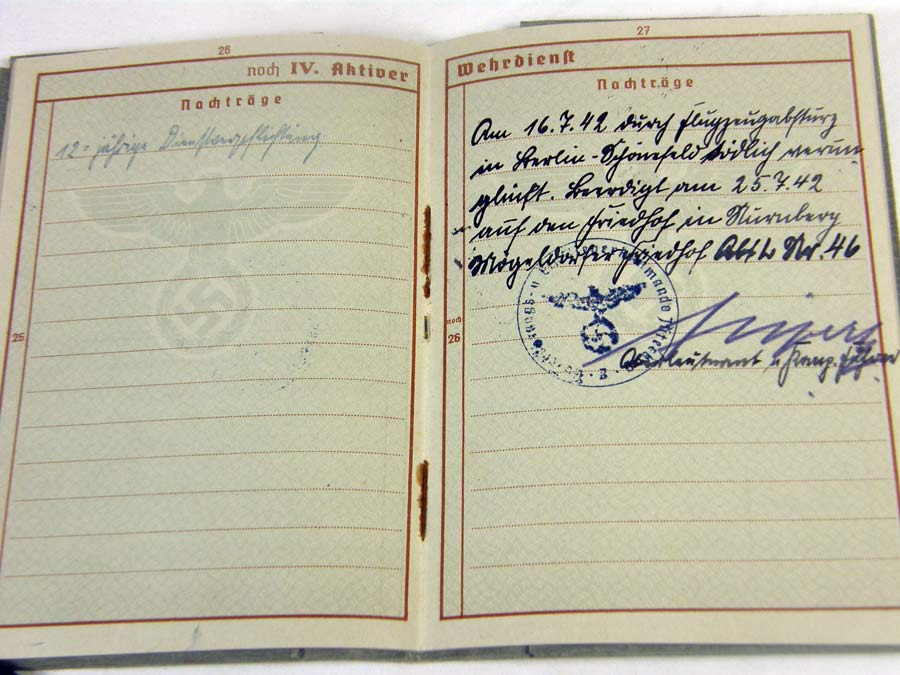 26
noch IV. Aktiver
Nachträge
12-jährige Dienstverpflichtung
26
27
Wehrdienst
Nachträge
Am 16.7.42 durch Flugzeugabsturz
in Berlin-Schönefeld tödlich verun-
glückt. Beerdigt am 25.7.42
auf den Friedhof in Nürnberg
Mögeldorfer Friedhof Abt L Nr. 46
noch
26
Oberleutnant u. Komp.